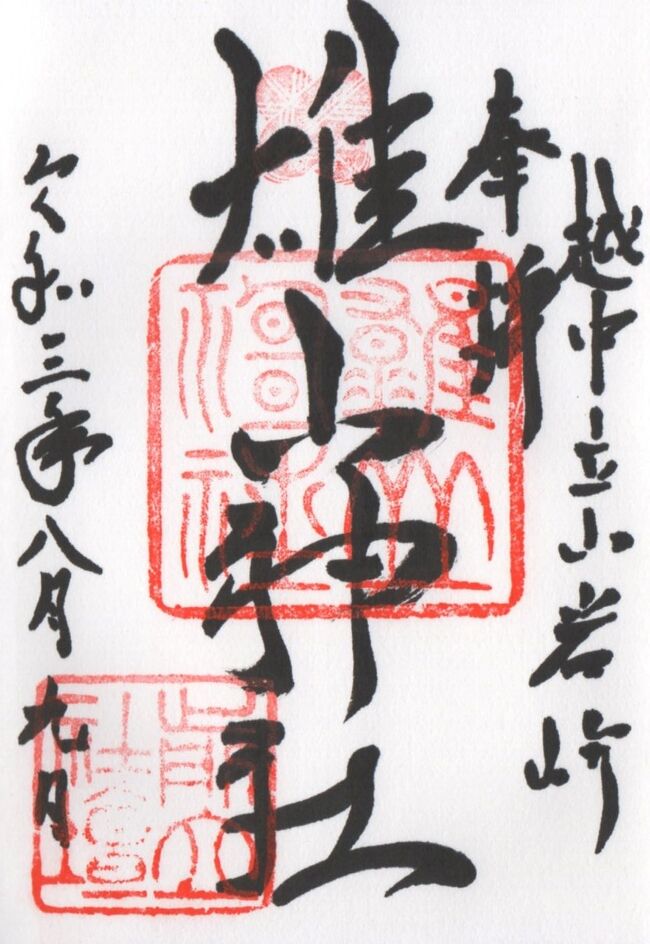 越中立山岩峅
奉拝
雄山神社
令和三年八月九日